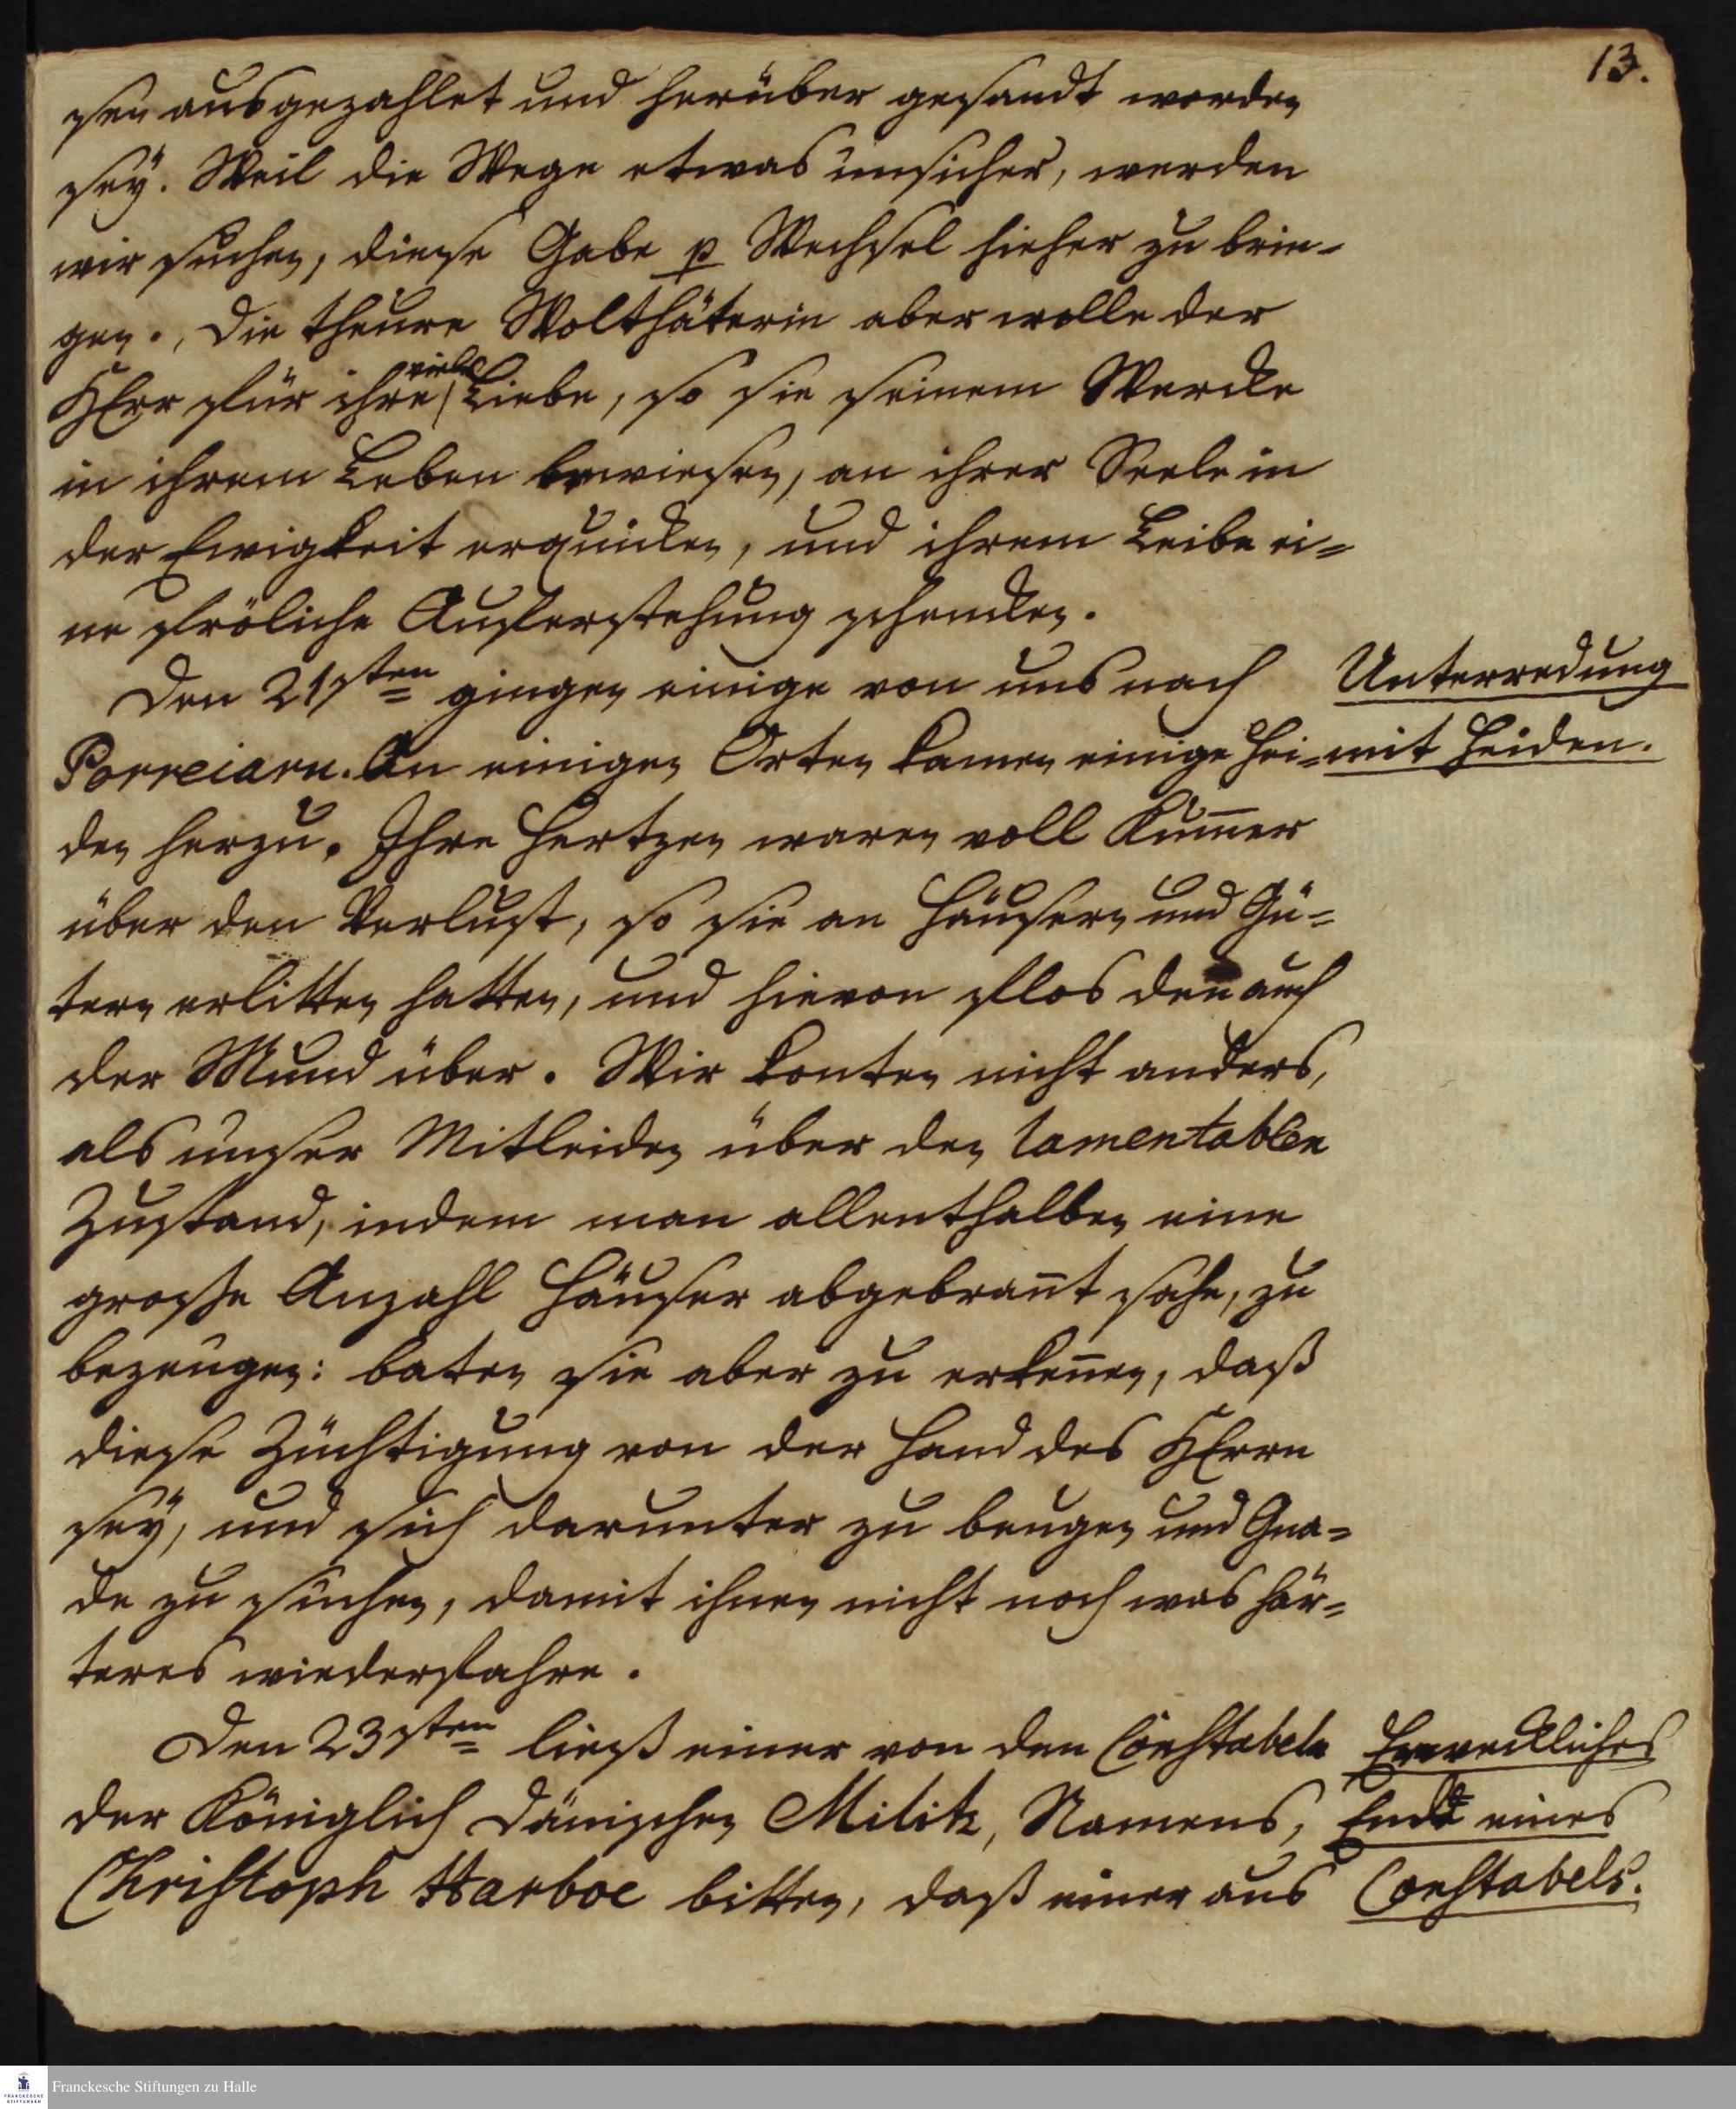 13.
sen ausgezahlet und herüber gesandt worden
sey. Weil die Wege etwas unsicher, werden
wir suchen, diese Gabe p Wechsel hieher zu brin-
gen., die theure Wolthäterin aber wolle der
HErr für ihre viele Liebe, so sie seinem Wercke
in ihrem Leben bewiesen, an ihrer Seele in
der Ewigkeit erquicken, und ihrem Leibe ei-
ne fröliche Auferstehung schencken.
Den 21sten gingen einige von uns nach
Unterredung
Porreiaru. An einigen Orten kamen einige Hei-
mit Heiden.
den herzu. Ihre Hertzen waren voll Kum̄er
über den Verlust, so sie an Häusern und Gü-
tern erlitten hatten, und hievon flos den auch
der Mund über. Wir konten nicht anders,
als unser Mitleiden über den lamentablen
Zustand, indem man allenthalben eine
grosse Anzahl Häuser abgebran̄t sahe, zu
bezeugen: baten sie aber zu erken̄en, daß
diese Züchtigung von der Hand des HErrn
sey, und sich darunter zu beugen und Gna-
de zu suchen, damit ihnen nicht noch was här-
teres wiederfahre.
Den 23sten ließ einer von den Constabeln
Erweckliches
der Königlich Dänischen Militz, Namens,
Ende eines
Christoph Harboe bitten, daß einer aus
Constabels.
Franckesche Stiftungen zu Halle
FRANCKESCHE
STIFTUNGEN